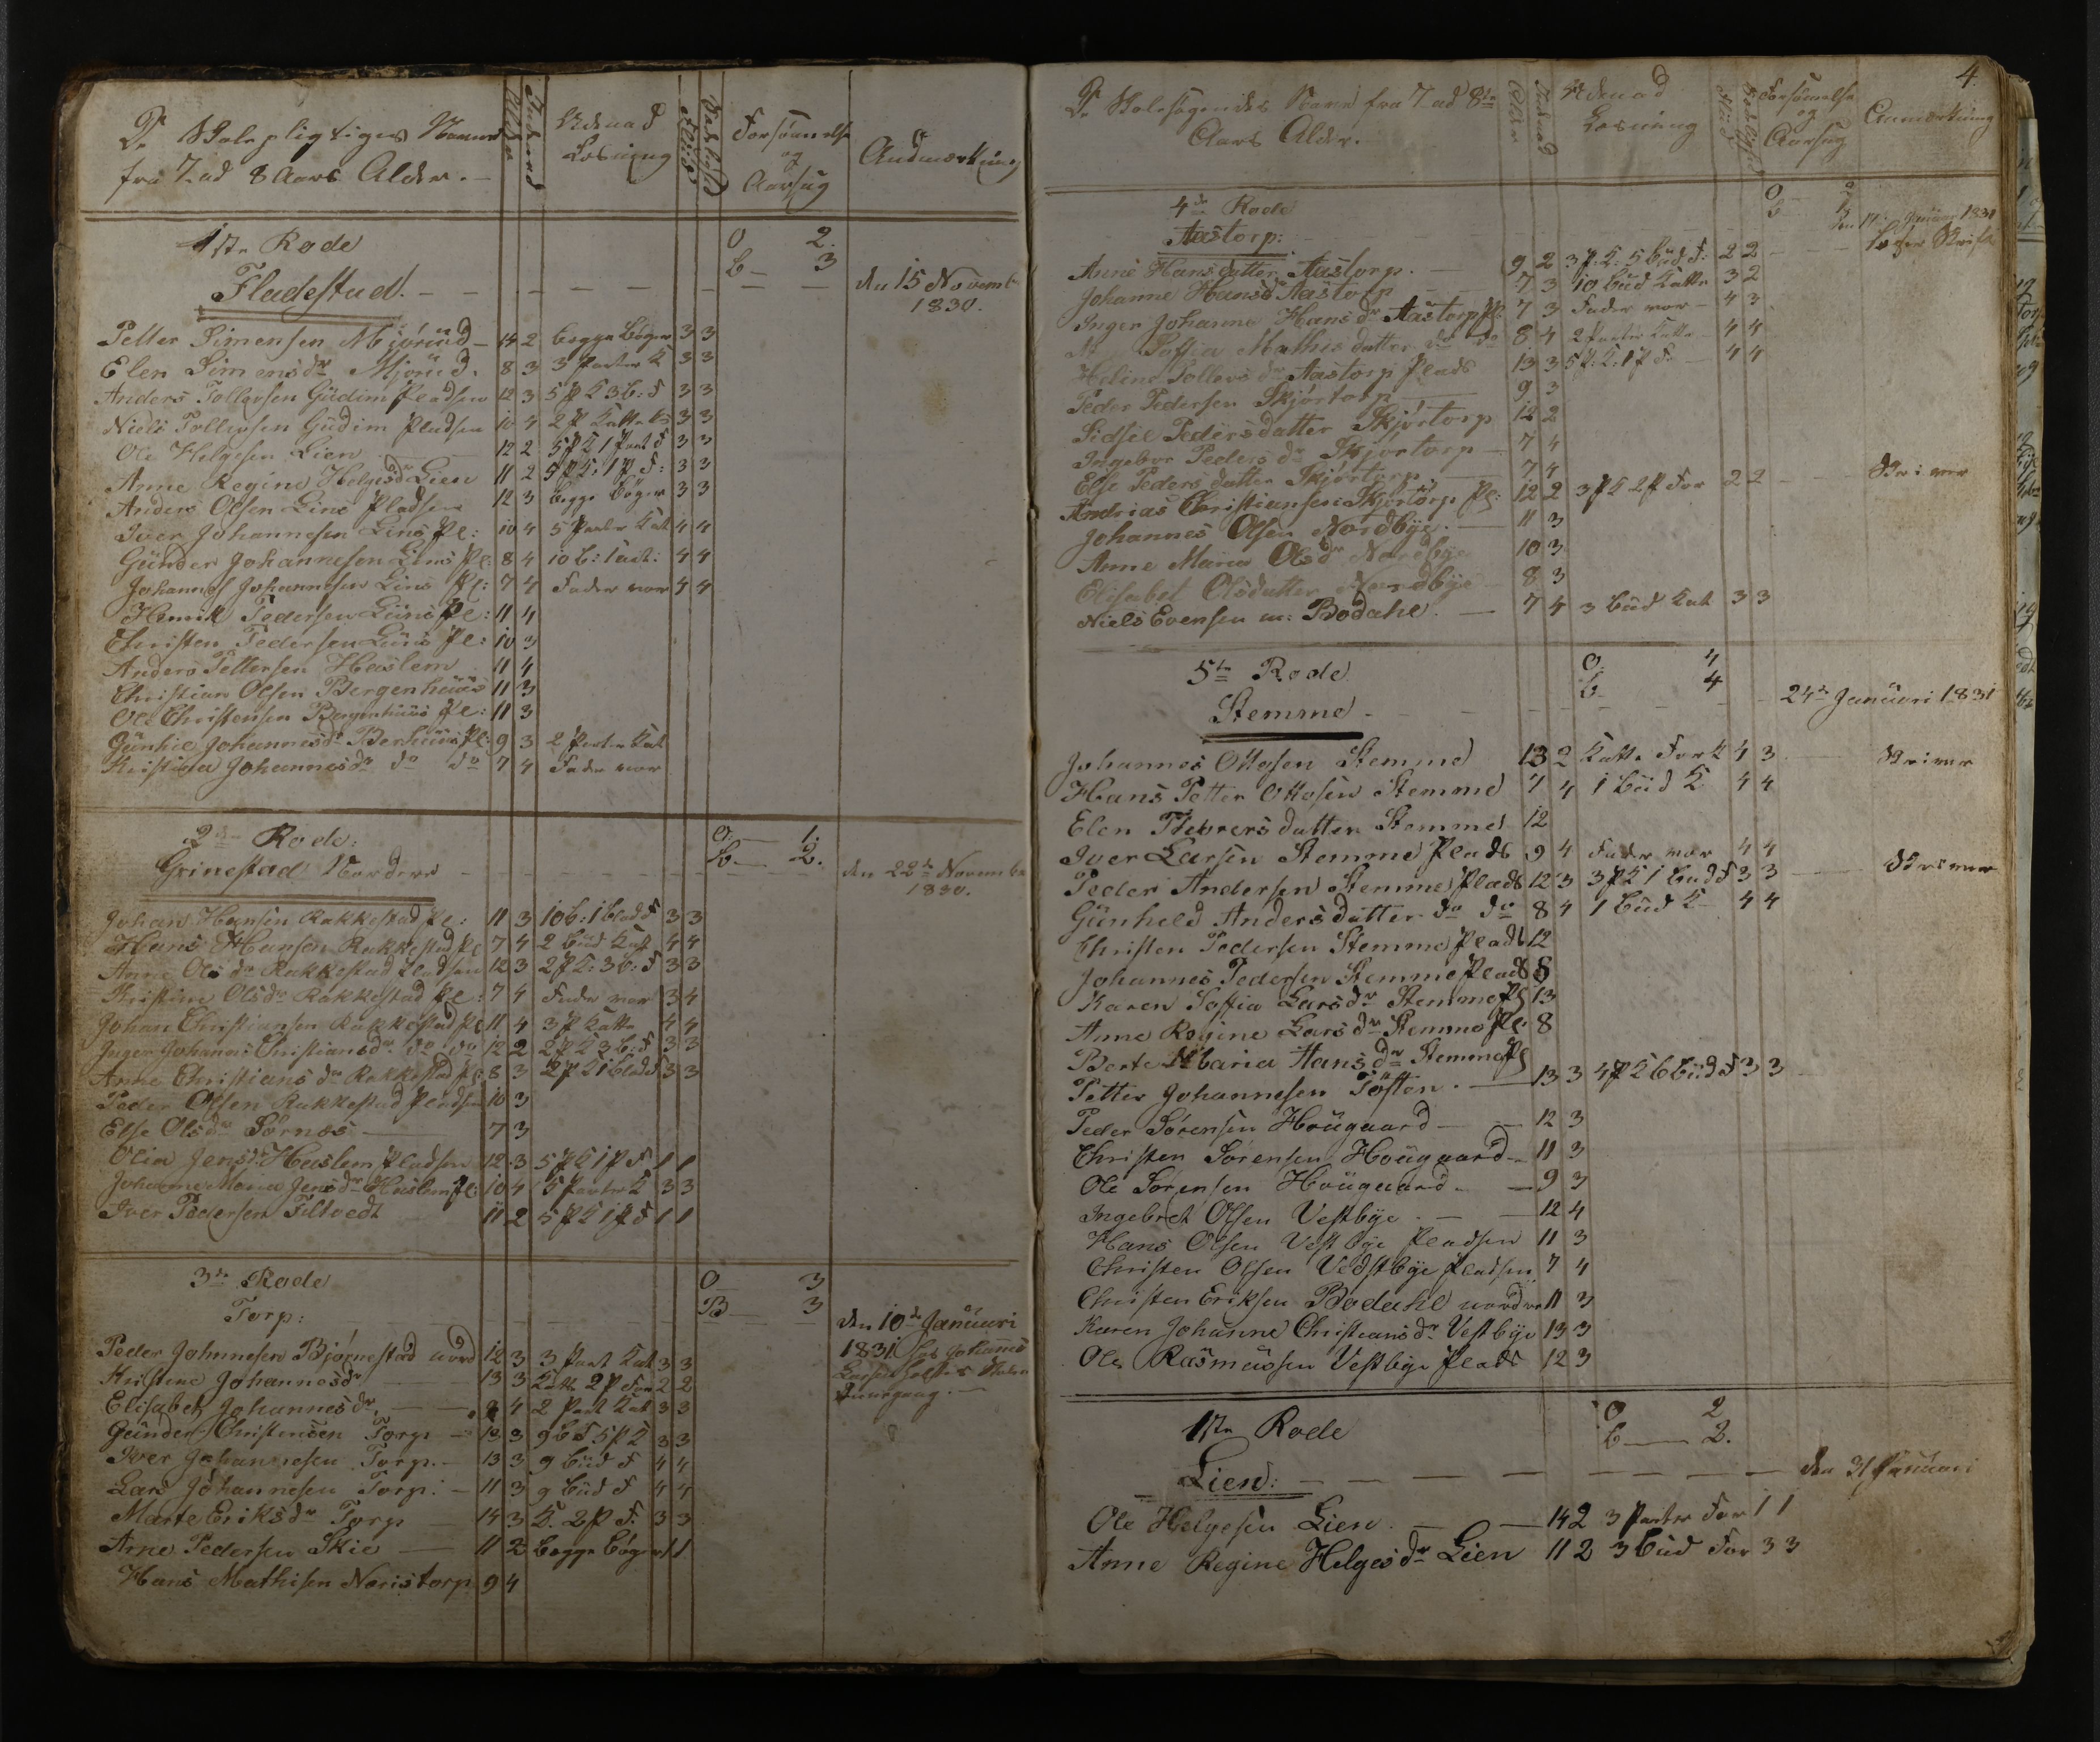 De Skolepligtiges Navne
fra 7. ad 8 Aars Alder.
Alder
Udenad Læsning
Flid
Forsømmelse og Aarsag
Anmærkning
1ste Rode
O 2.
b – 3
Fladestad.
den 15 Novemb
1830.
Petter Simensen Mjörud – 14 2 begge bøger 3 3
Elen Simensdr Mjörud. 8 3 3 Parter K 3 3
Anders Tollevsen Gudim Pladsen 12 3 5 P K 3 b: F 3 3
Niels Tollevsen Gudim Pladsen 10 4 2 P Katte K 3 3
Ole Helgesen Lien 12 2 5 P K 1 Part F 3 3
Anne Regine Helgesdr Lien 11 2 5 P K. 1 P. F: 3 3
Anders Olsen Liens Pladsen 12 3 begge bøger 3 3
Iver Johannesen Liens Pl: 10 4 5 Parter Kat 4 4
Gunder Johannesen Liens Pl: 8 4 10 b: 4 4
Johannes Johannesen Liens Pl: 7 4 Fader vor 4 4
Henrik Pedersen Liens Pl: 11 4
Christen Pedersen Liens Pl: 10 3
Anders Pettersen Haslem 11 4
Christian Olsen Bergenhuus 11 3
Ole Christensen Bergenhuus Pl: 11 3
Gunhil Johannesdr Berhuus Pl: 9 3 2 Parter Kat
Kristina Johannesdr do do 7 4 Fader vor
2den Rode:
O – 1.
b – 2.
Grinestad Nordere
den 22de Novembe
1830.
Johan Hansen Rakkestad Pl: 11 3 10 b: 1 blad F 3 3
Hans Hansen Rakkestad Pl 7 4 2 bud Kat 4 4
Anne Olsdr Rakkestad Pladsen 12 3 2 P K: 3 b: F 3 3
Kristine Olsdr Rakkestad Pl: 7 4 Fader vor 3 4
Johan Christiansen Rakkestad Pl 11 4 3 P Katte 4 4
Inger Johanne Christiansdr do do 12 2 2 P K 3 b: F 3 3
Anne Christiansdr Rakkestad Pl: 8 3 2 P K 1 blad F 3 3
Peder Olsen Rakkestad Pladsen 10 3
Else Olsdr Sörnæs 7 3
Olia Jensdr Haslem Pladsen 12 3 5 P K 1 P F 1 1
Johanne Maria Jensdr Haslem Pl: 10 4 5 Parter K 3 3
Iver Pedersen Filtvedt 11 2 5 P K 1 P F 1 1
3de Rode
O 3
B – 3
Torp:
den 10de Januari
1831 hos Johanes
Peder Johannesen Björnestad nord 12 3 3 Part Kat 3 3
Kristine Johannesdr 13 3 Katte 2 P For 2 2
Elisabeth Johannesdr. 8 4 2 Part Kat 3 3
Gunder Christensen Torp – 13 3 9 b F 5 P K 3 3
Iver Johannesen Torp. – 13 3 9 bud F 4 4
Lars Johannesen Torp: – 11 3 9 bud F 4 4
Marte Eriksdr Torp 14 3 K. 2 P F. 3 3
Arne Pedersen Skie 11 2 begge bøger 1 1
Hans Mathisen Noristorp 9 4
4.
De Skolesøgendes Navne fra 7 ad 8de
Aars Alder.
Alder
Udenad
Læsning
Flid
Forsømmelse
og
Aarsag
Anmærkning
4de Rode
O 2
b 3
Aastorp:
den 17. Januar 1831
Anne Hansdatter Aastorp. – 9 2 3 P. K. 5 bud F: 2 2
Johanne Hansdr Aastorp 7 3 10 bud Katte 3 2
Inger Johanne Hansdr Aastorp Pl: 7 3 Fader vor – 4 3
Soffia Mathisdatter do do 8 4 2 Parter Katte – 4 4
Heline Tollevsdr Aastorp Plads 13 3 5 P. K. 1 P F – 4 4
Peder Pedersen Skjörtorp 9 3
Sidsel Pedersdatter Skjörtorp 12 2
Ingebor Pedersdr Skjörtorp – 7 4
Else Pedersdatter Skjörtorp. – 7 4
Andrias Christiansen Skjörtorp Pl: 12 2 3 P K 2 P For 2 2 Skriver
Johannes Olsen Nordbye. – 11 3
Anne Maria Olsdr Nordbye 10 3
Elisabet Olsdatter Nordbye – 8 3
Niels Evensen m: Bodahl. – 7 4 3 bud Kat 3 3
5te Rode
O. 4
b – 4
Stemme – 24de Januari 1831
Johannes Ottesen Stemme 13 2 Katte Fork 4 3 Skriver
Hans Petter Ottosen Stemme 7 4 1 bud K 4 4
Elen Breversdatter Stemme 12
Iver Larsen Stemme Plads 9 4 Fader vor 4 4
Peder Andersen Stemme Plads 12 3 3 P K 1 bud F 3 3 Skriver
Gunheld Andersdatter do do 8 4 1 bud K – 4 4
Christen Pedersen Stemme Plads 12
Johannes Pedersen Stemme Plads 8
Karen Soffia Larsdr Stemme Pl 13
Anne Regine Larsdr Stemme Pl: 8
Berte Maria Hansdr Stemme Pl
Petter Johannesen Toften. – 13 3 4 P K 6 bud F 3 3
Peder Sörensen Hougaard – 12 3
Christen Sörensen Hougaard – 11 3
Ole Sörensen Hougaard – 9 3
Ingebret Olsen Vestbye. – 12 4
Hans Olsen Vestbye Pladsen 11 3
Christen Olsen Vedstbye Pladsen 7 4
Christen Eriksen Bodahl nordre 11 3
Karen Johanne Christiansdr Vestbye 13 3
Ole Rasmussen Vestbye Plads 12 3
1ste Rode
O 2
b – 3.
Lien: – den 31 Januari
Ole Helgesen Lien – 14 2 3 Parter For 1 1
Anne Regine Helgesdr Lien 11 2 3 bud For 3 3